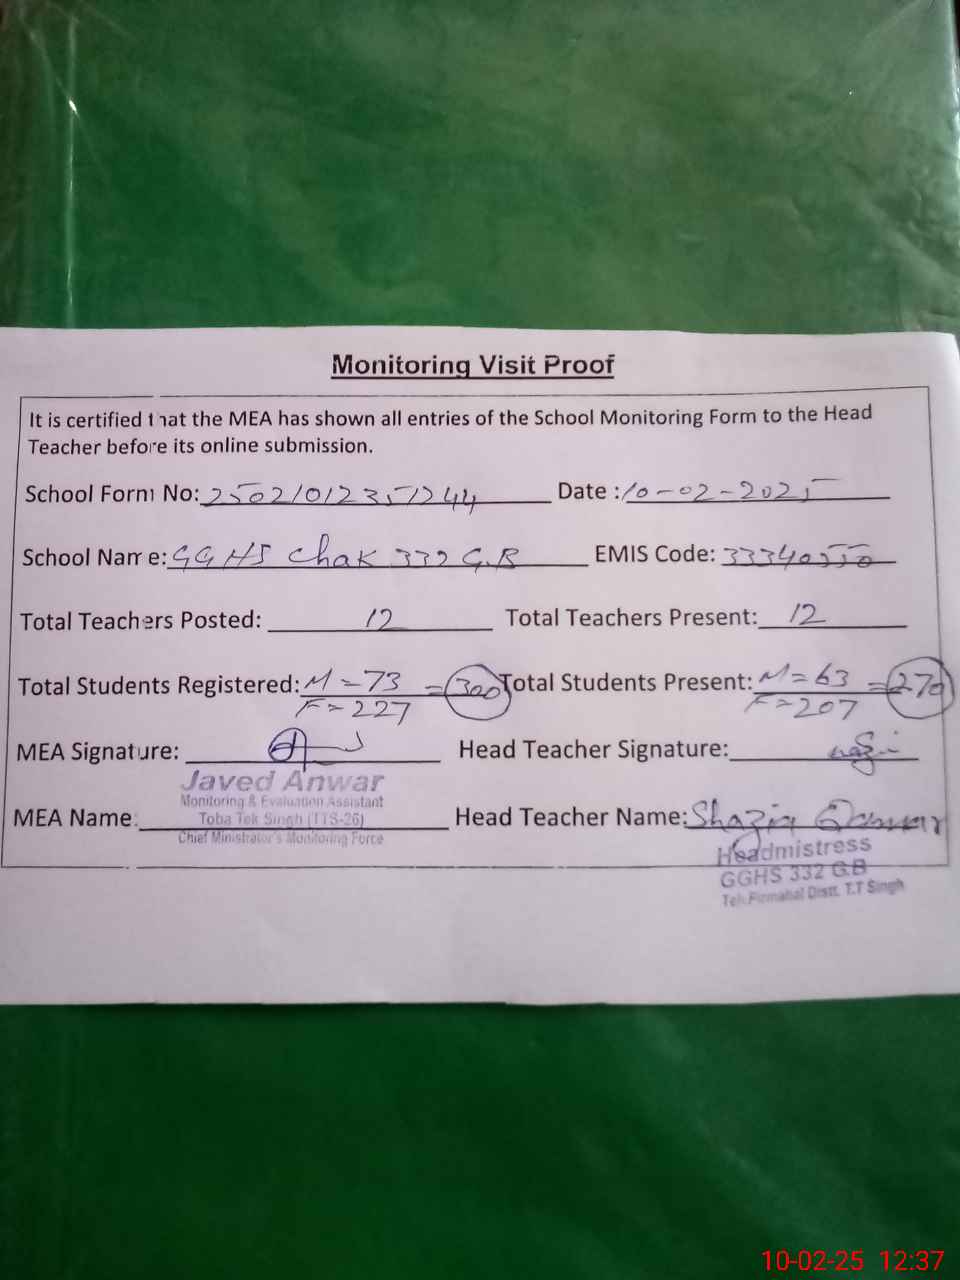 Monitoring Visit Proof
It is certified that the MEA has shown all entries of the School Monitoring Form to the Head
Teacher before its online submission.
School Form No: 25021012351244 Date : 10-02-2025
School Name: GGHS Chak 332 G.B EMIS Code: 33340550
Total Teachers Posted: 12 Total Teachers Present: 12
Total Students Registered: M = 73 = 300 Total Students Present: M = 63 = 270
F = 227 F = 207
MEA Signature: Head Teacher Signature:
Javed Anwar
Monitoring & Evaluation Assistant
MEA Name: Toba Tek Singh (TTS-26) Head Teacher Name: Shazia
Chief Minister's Monitoring Force
Headmistress
GGHS 332 G.B
Teh. Distt. T.T Singh
10-02-25 12:37